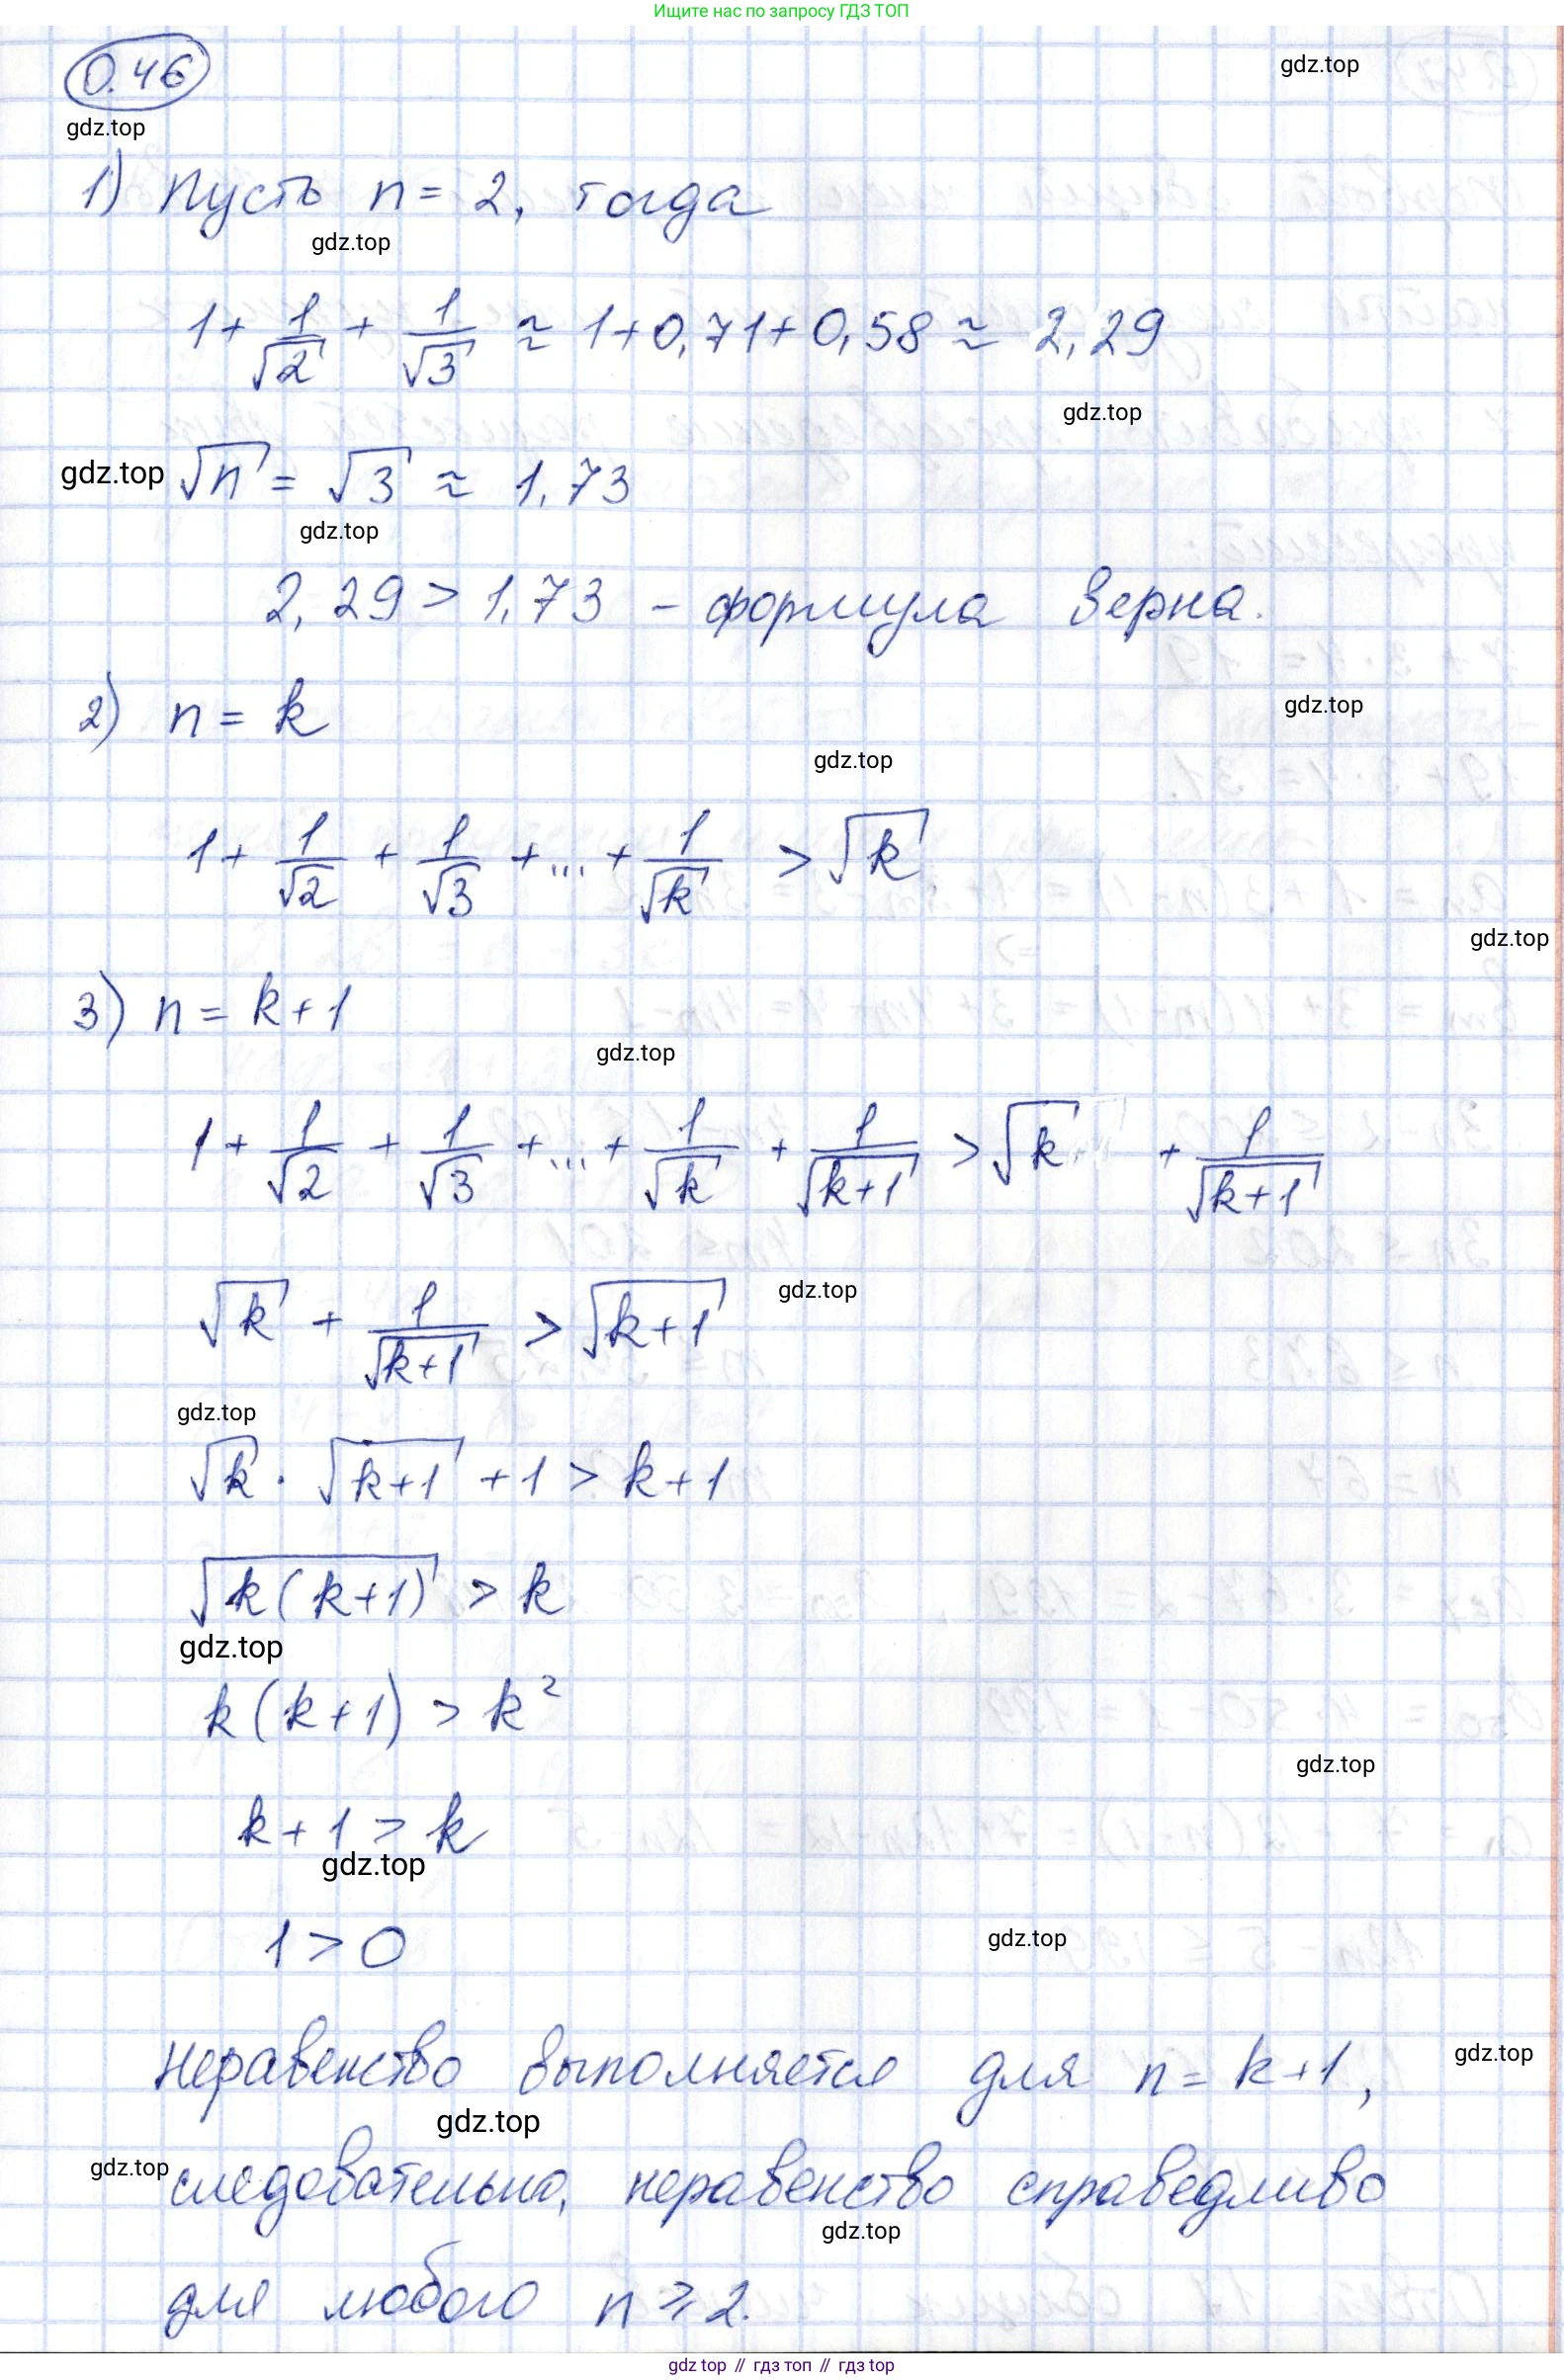 Ищите нас по запросу ГДЗ ТОП
0.46
gdz.top
gdz.top
1) Пусть n = 2, тогда
gdz.top
1 + 1/√2 + 1/√3 ≈ 1 + 0,71 + 0,58 ≈ 2,29
gdz.top
gdz.top √n = √3 ≈ 1,73
gdz.top
2,29 > 1,73 – формула верна.
2) n = k
gdz.top
gdz.top
1 + 1/√2 + 1/√3 + ... + 1/√k > √k
gdz.top
3) n = k + 1
gdz.top
1 + 1/√2 + 1/√3 + ... + 1/√k + 1/√(k+1) > √k + 1/√(k+1)
√k + 1/√(k+1) > √(k+1)
gdz.top
gdz.top
√k · √(k+1) + 1 > k + 1
√(k(k+1)) > k
gdz.top
k(k+1) > k²
gdz.top
k + 1 > k
gdz.top
1 > 0
gdz.top
Неравенство выполняется для n = k + 1,
gdz.top
gdz.top
gdz.top
следовательно, неравенство справедливо
gdz.top
для любого n ⩾ 2.
gdz top // гдз топ // гдз top